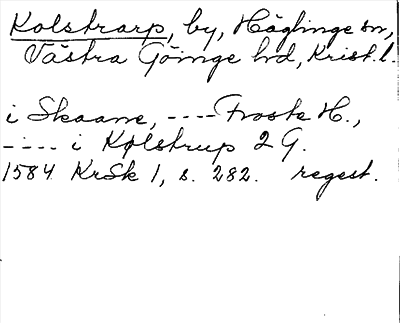 Kolstrarp, by, Häglinge sn,
Västra Göinge hd, Krist. l.
i Skaane, ---- Froste H.,
-.-.-. i Kølstrup 2 G.
1584 KrSk 1, s. 282. regest.